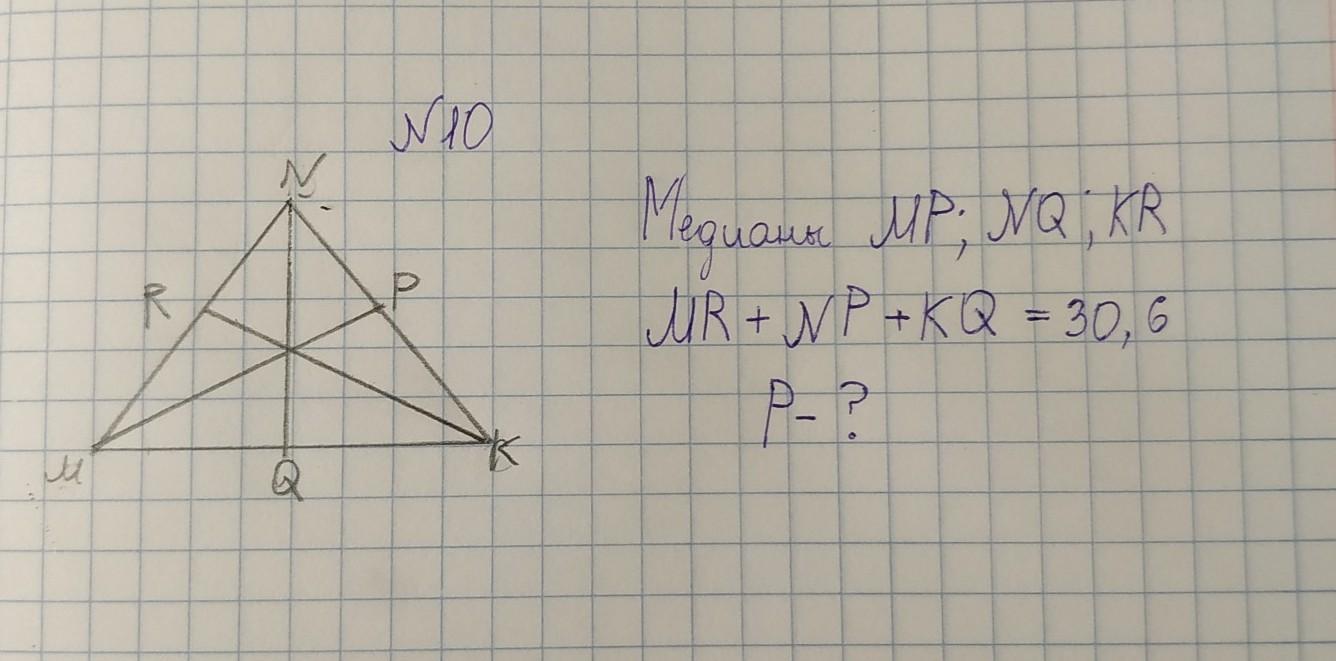 N10
N
R
P
M
Q
K
Медианы MP; NQ; KR
MR + NP + KQ = 30,6
P - ?